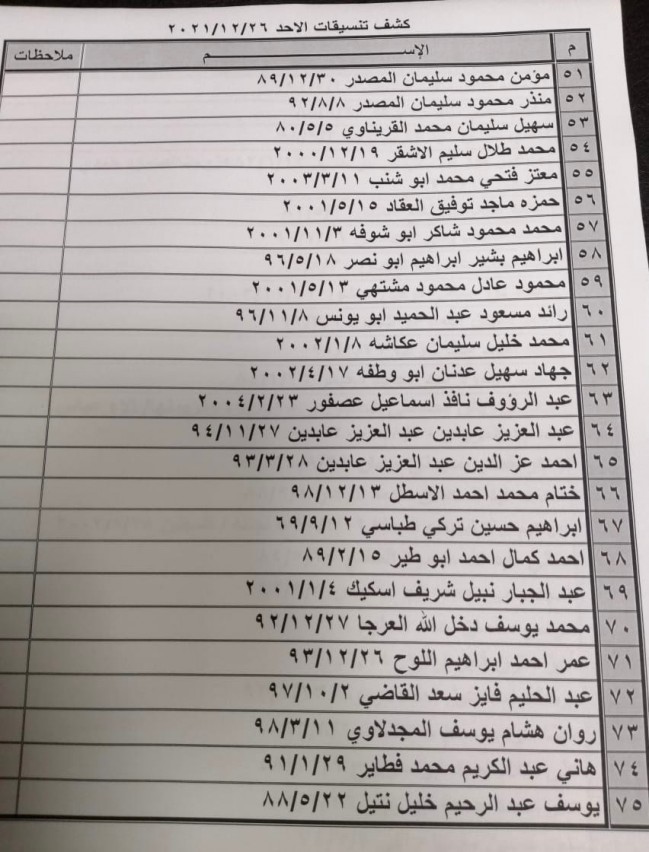 كشف تنسيقات الاحد ٢٠٢١/١٢/٢٦
م الإســـــــم ملاحظات
٥١ مؤمن محمود سليمان المصدر ٨٩/١٢/٣٠
٥٢ منذر محمود سليمان المصدر ٩٢/٨/٨
٥٣ سهيل سليمان محمد القريناوي ٨٠/٥/٥
٥٤ محمد طلال سليم الاشقر ٢٠٠٠/١٢/١٩
٥٥ معتز فتحي محمد ابو شنب ٢٠٠٣/٣/١١
٥٦ حمزه ماجد توفيق العقاد ٢٠٠١/٥/١٥
٥٧ محمد محمود شاكر ابو شوفه ٢٠٠١/١١/٣
٥٨ ابراهيم بشير ابراهيم ابو نصر ٩٦/٥/١٨
٥٩ محمود عادل محمود مشتهي ٢٠٠١/٥/١٣
٦٠ رائد مسعود عبد الحميد ابو يونس ٩٦/١١/٨
٦١ محمد خليل سليمان عكاشه ٢٠٠٢/١/٨
٦٢ جهاد سهيل عدنان ابو وطفه ٢٠٠٢/٤/١٧
٦٣ عبد الرؤوف نافذ اسماعيل عصفور ٢٠٠٤/٢/٢٣
٦٤ عبد العزيز عابدين عبد العزيز عابدين ٩٤/١١/٢٧
٦٥ احمد عز الدين عبد العزيز عابدين ٩٣/٣/٢٨
٦٦ ختام محمد احمد الاسطل ٩٨/١٢/١٣
٦٧ ابراهيم حسين تركي طباسي ٦٩/٩/١٢
٦٨ احمد كمال احمد ابو طير ٨٩/٢/١٥
٦٩ عبد الجبار نبيل شريف اسكيك ٢٠٠١/١/٤
٧٠ محمد يوسف دخل الله العرجا ٩٢/١٢/٢٧
٧١ عمر احمد ابراهيم اللوح ٩٣/١٢/٢٦
٧٢ عبد الحليم فايز سعد القاضي ٩٧/١٠/٢
٧٣ روان هشام يوسف المجدلاوي ٩٨/٣/١١
٧٤ هاني عبد الكريم محمد فطاير ٩١/١/٢٩
٧٥ يوسف عبد الرحيم خليل نتيل ٨٨/٥/٢٢